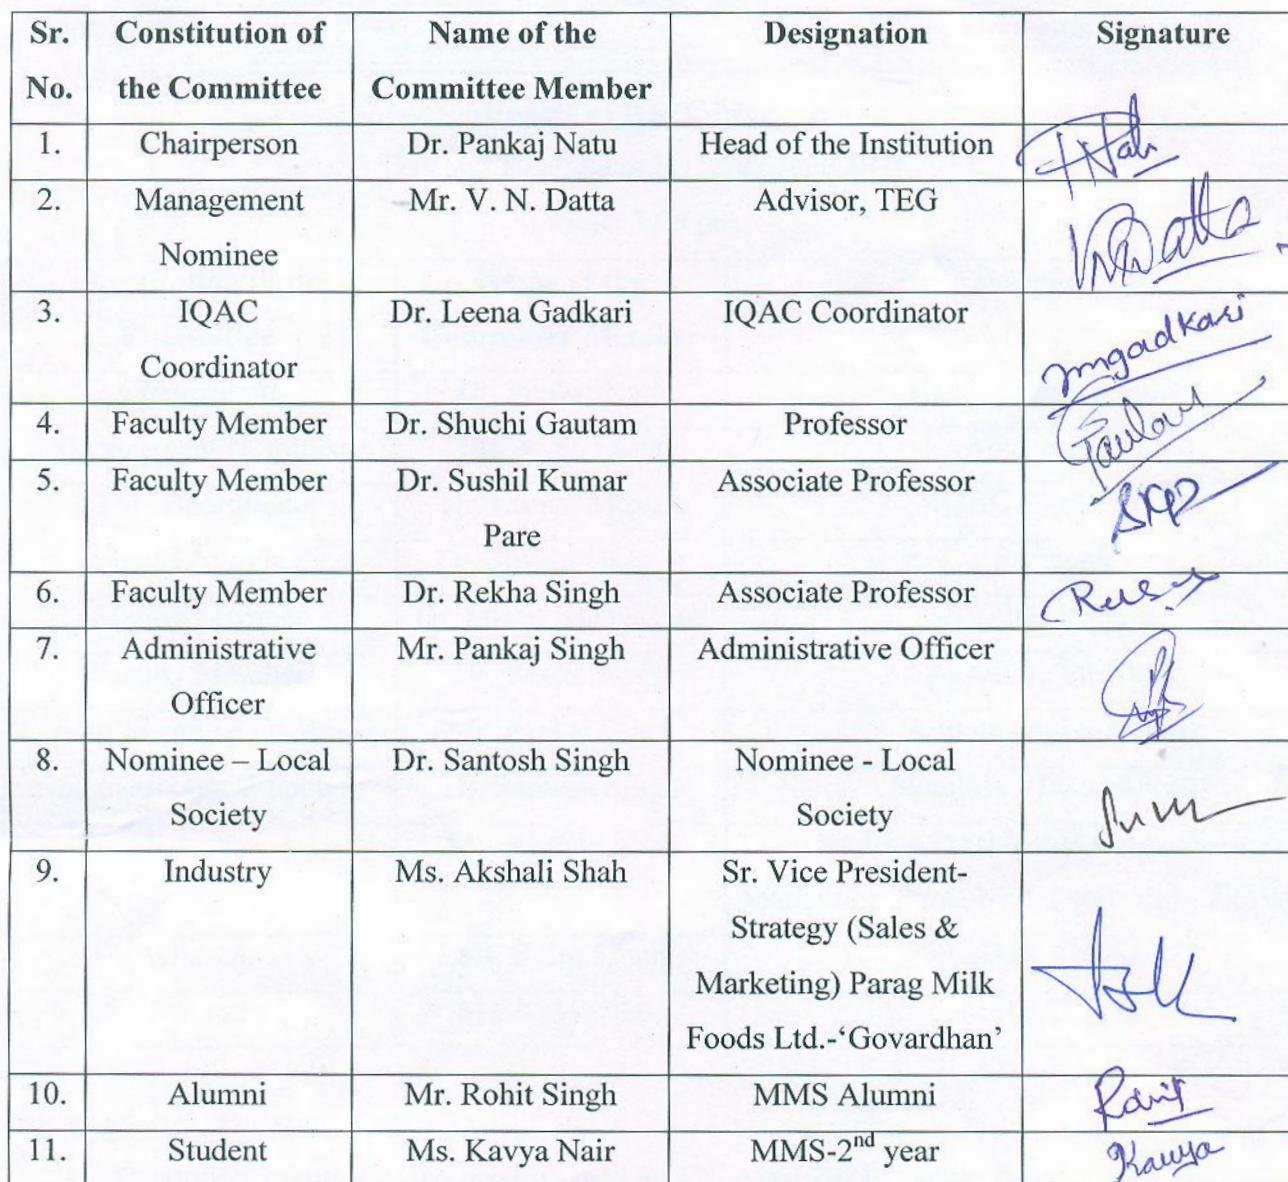 Sr. No. Constitution of the Committee Name of the Committee Member Designation Signature
1. Chairperson Dr. Pankaj Natu Head of the Institution
2. Management Nominee Mr. V. N. Datta Advisor, TEG VNDatta
3. IQAC Coordinator Dr. Leena Gadkari IQAC Coordinator mgadkari
4. Faculty Member Dr. Shuchi Gautam Professor
5. Faculty Member Dr. Sushil Kumar Pare Associate Professor
6. Faculty Member Dr. Rekha Singh Associate Professor
7. Administrative Officer Mr. Pankaj Singh Administrative Officer
8. Nominee – Local Society Dr. Santosh Singh Nominee - Local Society
9. Industry Ms. Akshali Shah Sr. Vice President- Strategy (Sales & Marketing) Parag Milk Foods Ltd.-‘Govardhan’
10. Alumni Mr. Rohit Singh MMS Alumni Rohit
11. Student Ms. Kavya Nair MMS-2nd year Kavya